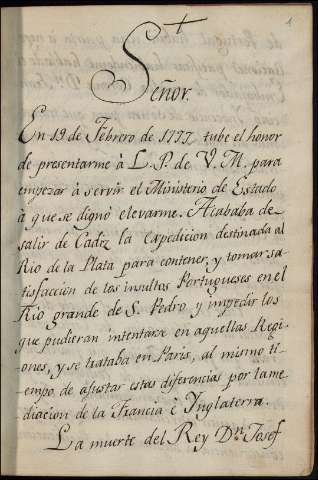 1
Señor.
En 19 de Febrero de 1777 tube el honor
de presentarme à L. P. de V. M. para
empezar à servir el Ministerio de Estado
à que se dignó elevarme. Acababa de
salir de Cadiz la expedicion destinada al
Rio de la Plata para contener, y tomar sa
tisfaccion de los insultos Portugueses en el
Rio grande de S. Pedro y impedir los
que pudieran intentarse en aquellas Regi-
ones, y se trataba en Paris, al mismo ti-
empo, de ajustar estas diferencias por la me
diacion de la Francia è Ynglaterra.
La muerte del Rey Dn. Josef